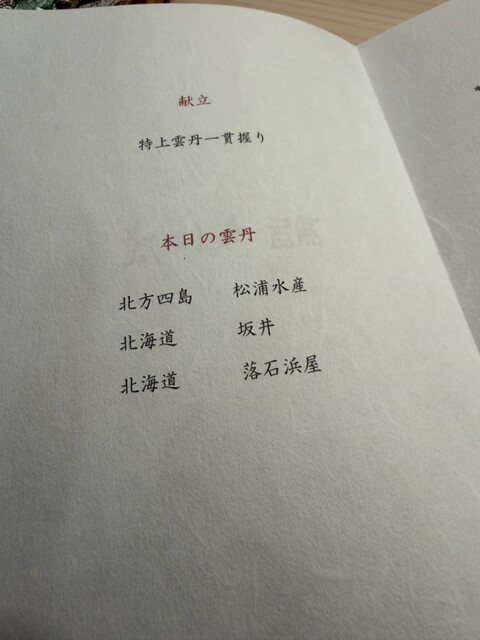 献立
特上雲丹一貫握り
本日の雲丹
北方四島　松浦水産
北海道　坂井
北海道　落石浜屋